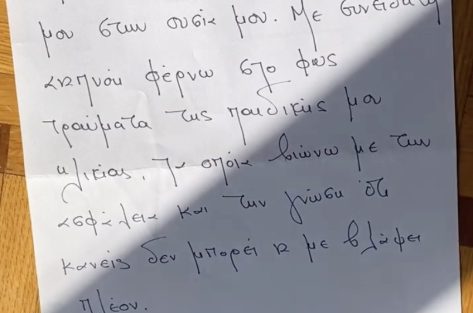 μου στην ουσία μου. Με συνειδητή
σκηνού φέρνω στο φως
τραύματα της παιδικής μου
ηλικίας, τα οποία βιώνω με την
ασφάλεια και την γνώση ότι
κανείς δεν μπορεί να με βλάψει
πλέον.